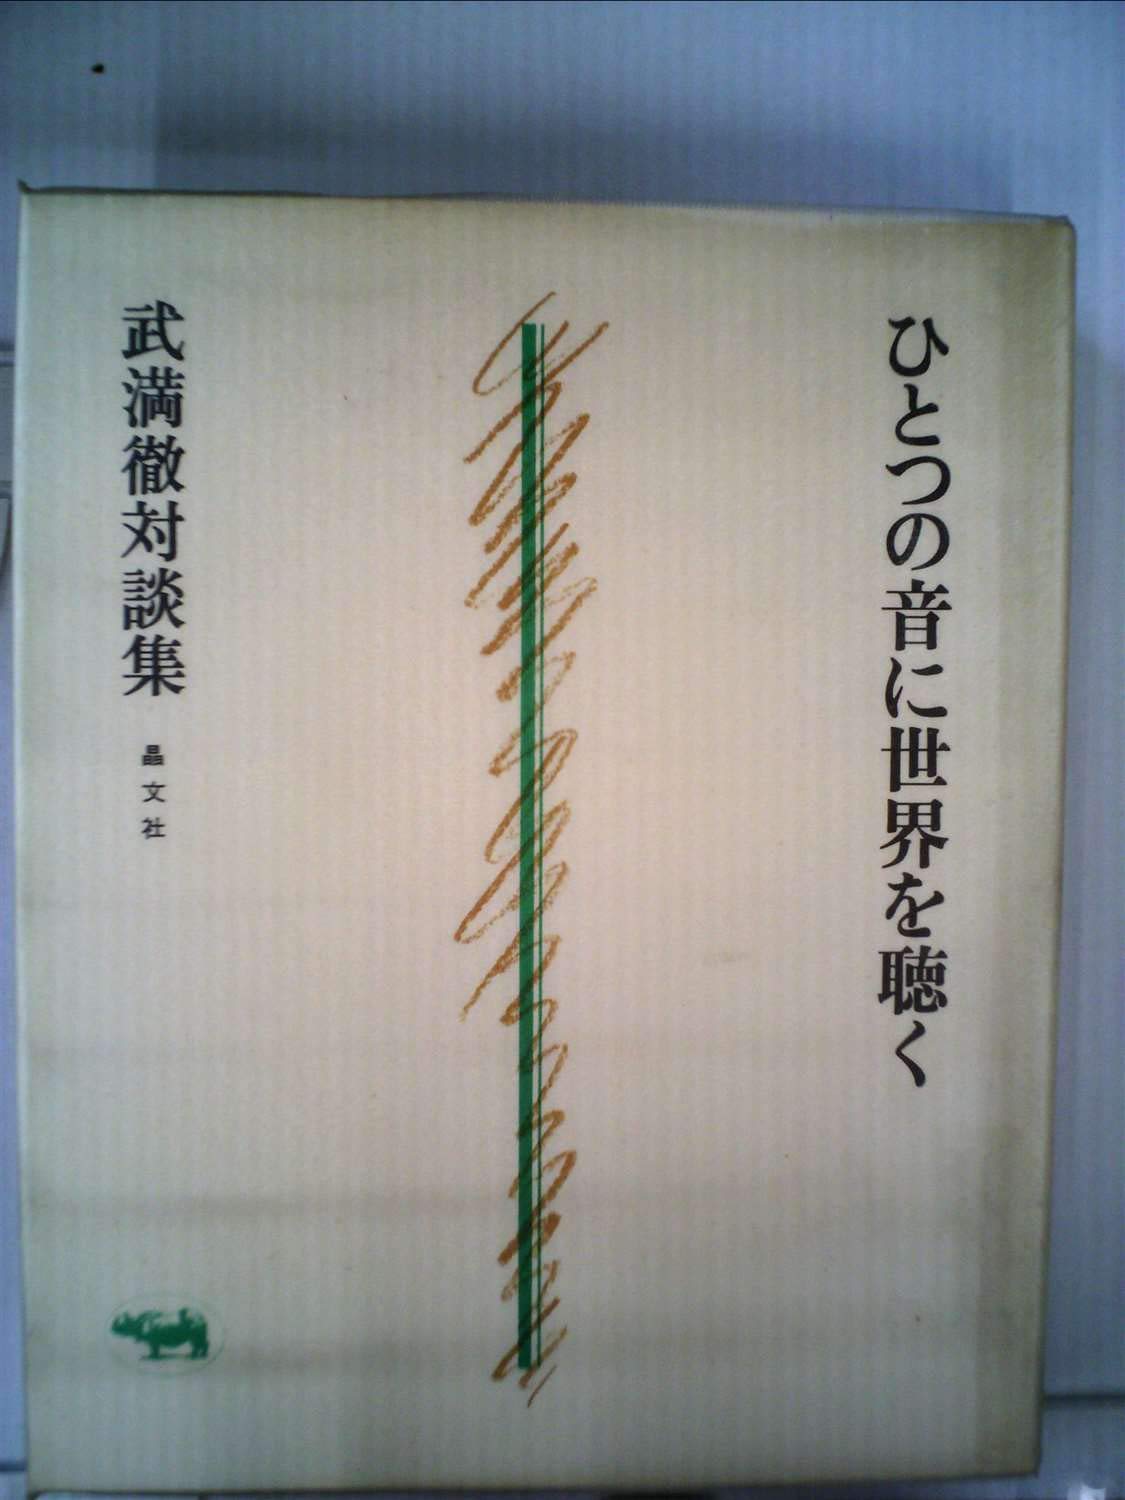 ひとつの音に世界を聴く
武満徹対談集
晶文社